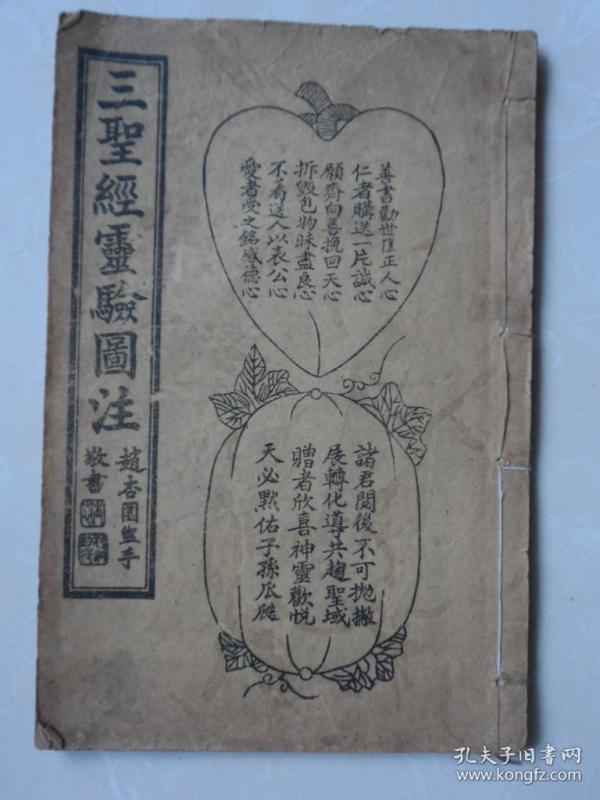 三聖經靈驗圖注
趙杏園盥手
敬書
善書勸世匡正人心
仁者購送一片誠心
願齊向善挽回天心
拆毀包物昧盡良心
不看送人以表公心
愛者受之銘感德心
諸君閱後不可拋撇
展轉化導共趨聖域
贈者欣喜神靈歡悅
天必默佑子孫瓜瓞
孔夫子旧书网
www.kongfz.com